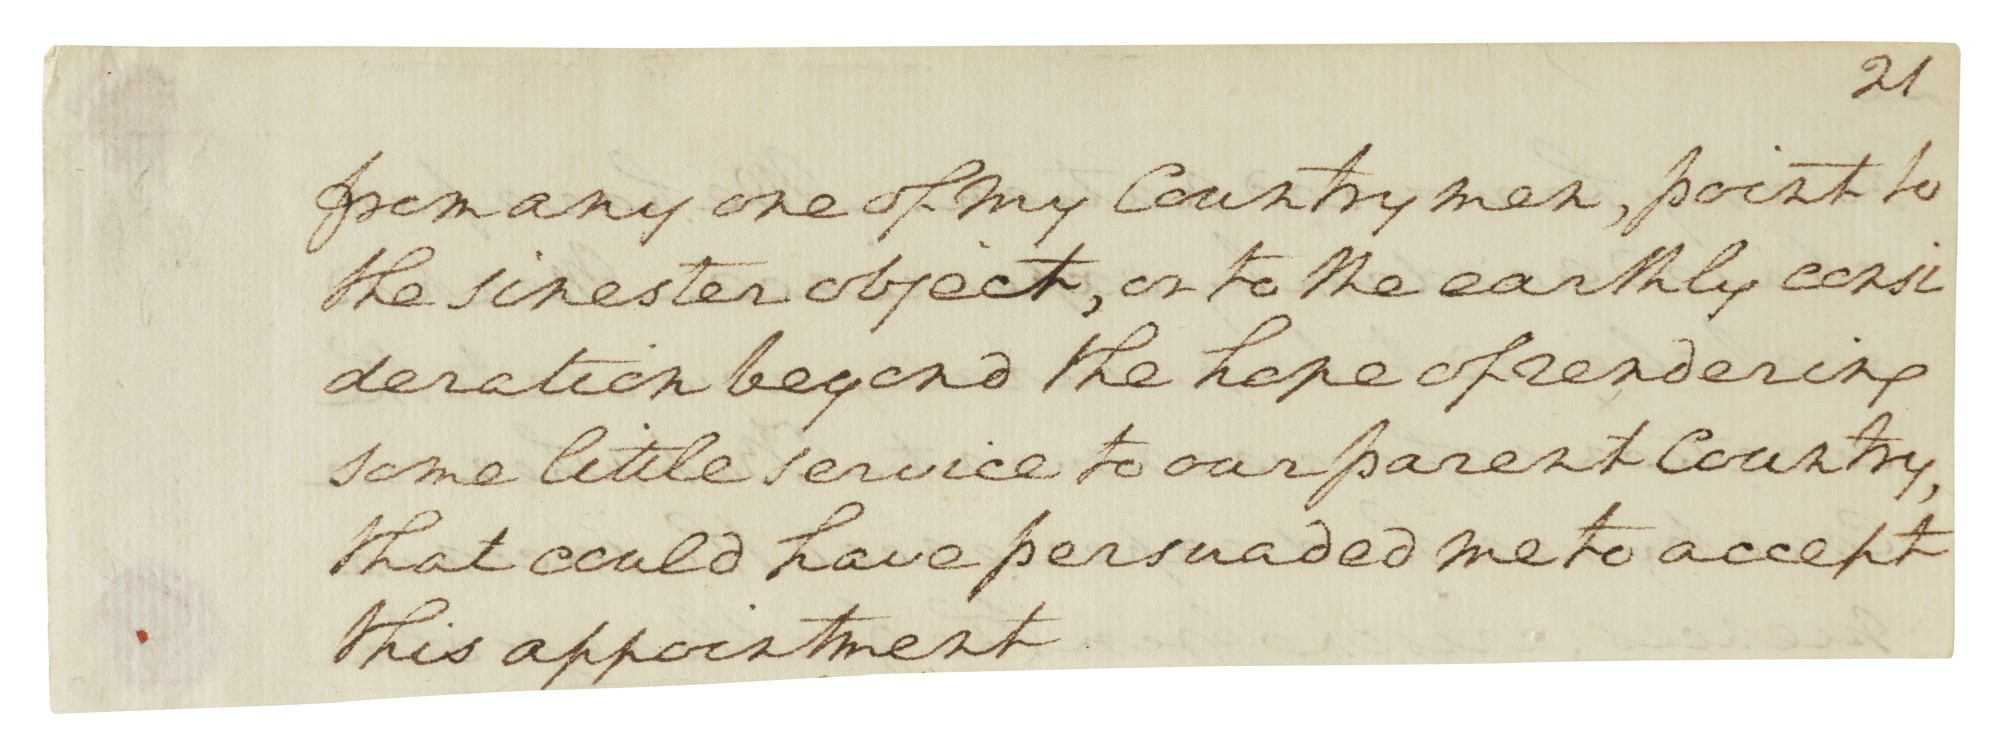 21
from any one of my Countrymen, point to
the sinester object, or to the earthly consi
deration beyond the hope of rendering
some little service to our parent Country,
that could have persuaded me to accept
this appointment